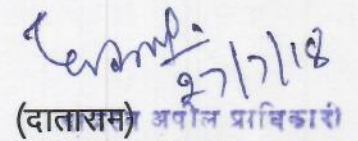 27/7/18
(दाताराम)
अपील प्राधिकारी